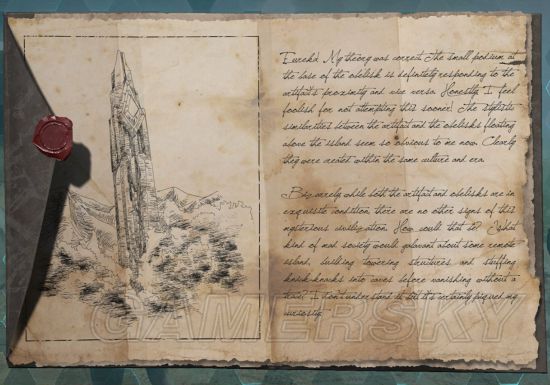 Eureka! My theory was correct. The small podium at
the base of the obelisk is definitely responding to the
artifact's proximity and vice versa. Honestly, I feel
foolish for not attempting this sooner! The stylistic
similarities between the artifact and the obelisks floating
above the island seem so obvious to me now. Clearly
they were created within the same culture and era.
Bizarrely, while both the artifact and obelisks are in
exquisite condition, there are no other signs of this
mysterious civilization. How could that be? What
kind of mad society would galavant about some remote
island, building towering structures and stuffing
knick-knacks into caves before vanishing without a
trace? I don't understand it, but it's certainly piqued my
curiosity.
GAMERSKY